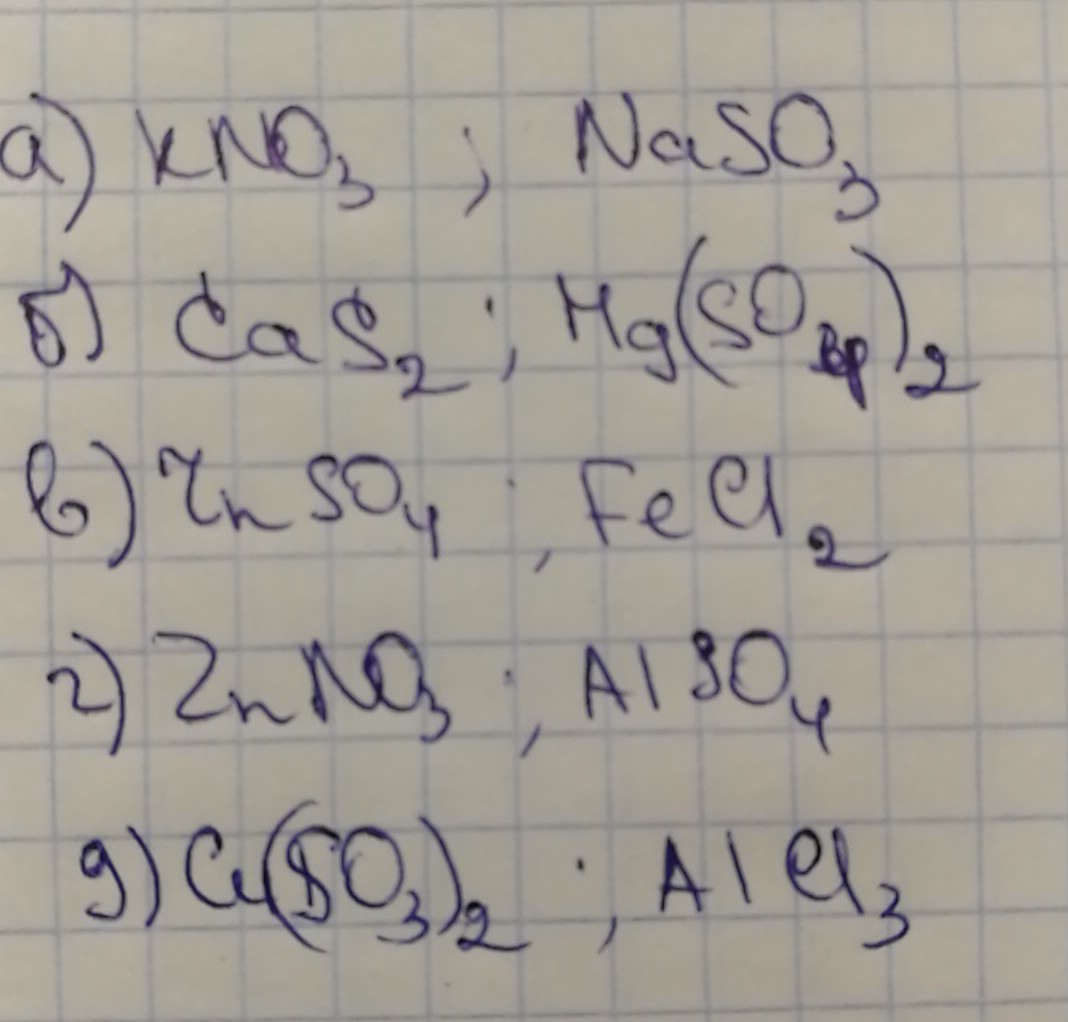 а) KNO₃ ; NaSO₃
б) CaS₂ ; Mg(SO )₂
в) ZnSO₄ ; FeCl₂
г) ZnNO₃ ; AlSO₄
д) Cu(SO₃)₂ ; AlCl₃